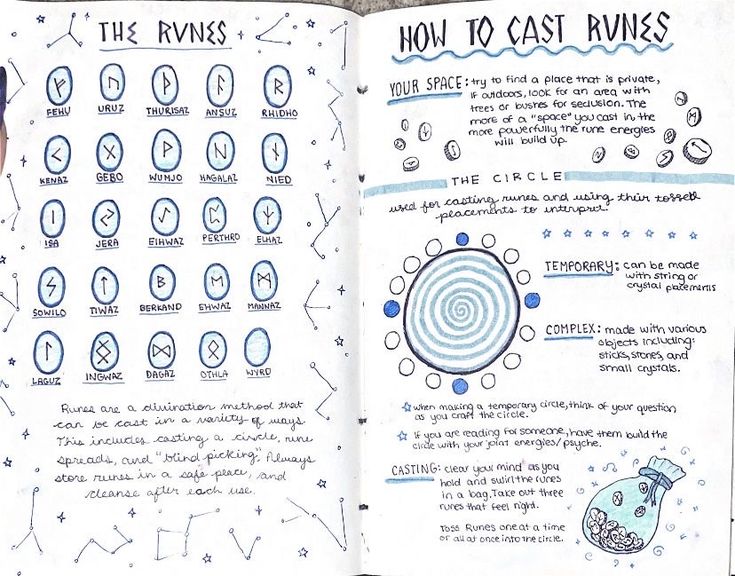 THE RUNES
FEHU URUZ THURISAZ ANSUZ RHIDHO
KENAZ GEBO WUNJO HAGALAZ NIED
ISA JERA EIHWAZ PERTHRO ELHAZ
SOWILO TIWAZ BERKAND EHWAZ MANNAZ
LAGUZ INGWAZ DAGAZ OTHLA WYRD
Runes are a divination method that
can be cast in a variety of ways.
This includes casting a circle, rune
spreads, and "blind picking". Always
store runes in a safe place, and
cleanse after each use.
HOW TO CAST RUNES
YOUR SPACE: try to find a place that is private,
if outdoors, look for an area with
trees or bushes for seclusion. The
more of a "space" you cast in, the
more powerfully the rune energies
will build up.
THE CIRCLE
used for casting runes and using their tossed
placements to interpret.
TEMPORARY: can be made
with string or
crystal placements
COMPLEX: made with various
objects including:
sticks, stones, and
small crystals.
☆ when making a temporary circle, think of your question
as you craft the circle.
☆ If you are reading for someone, have them build the
circle with your joint energies/psyche.
CASTING: clear your mind as you
hold and swirl the runes
in a bag. Take out three
runes that feel right.
Toss Runes one at a time
or all at once into the circle.